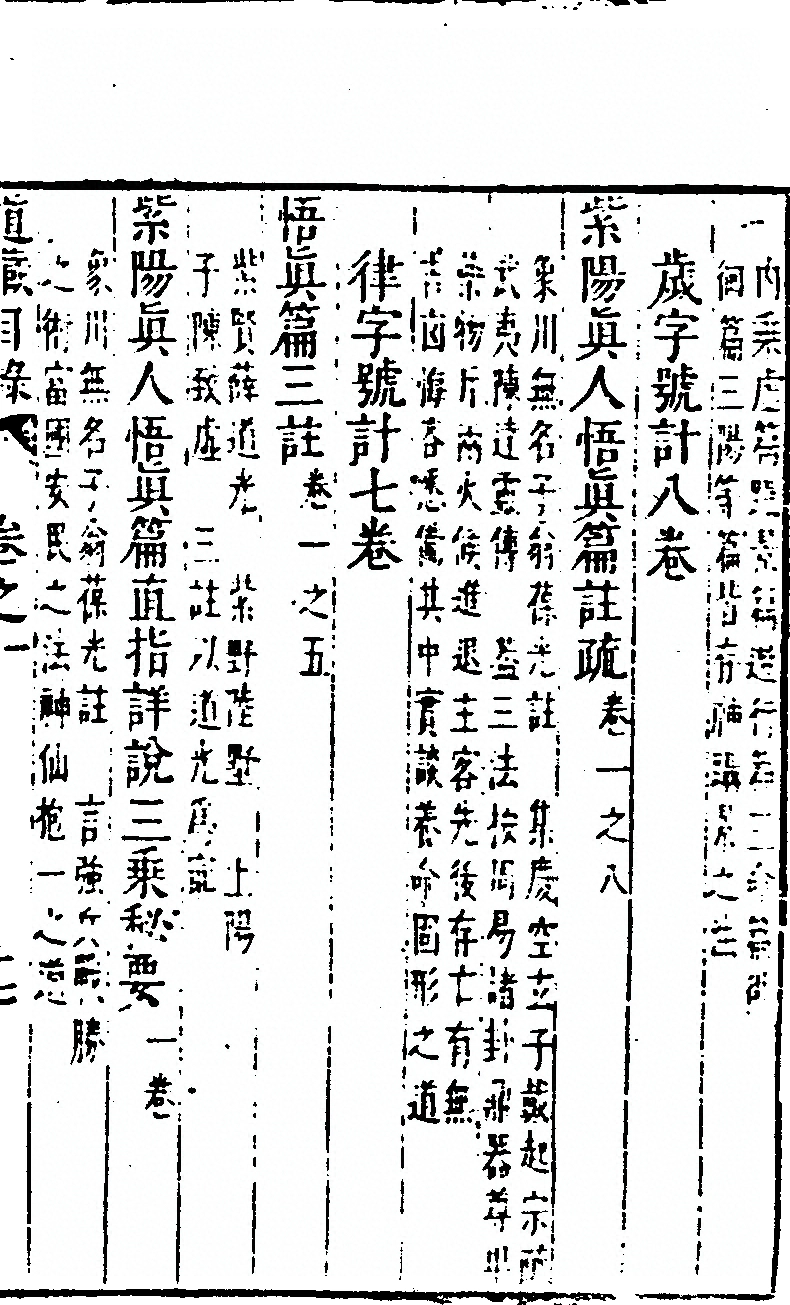 內采虛篇照景篇遊行若三命篇
個篇三陽等篇皆存腦攝景之法
歲字號計八卷
紫陽眞人悟眞篇註疏 卷一之八
象川無名子翁葆光註 集慶空玄子戴起宗疏
武夷陳達靈傳 蓋三法按周易諸卦鼎器尊卑
藥物斤兩火候進退主客先後存亡有無
吉凶悔吝悉備其中實談養命固形之道
律字號計七卷
悟眞篇三註 卷一之五
紫賢薛道光 紫野陸墅 上陽
子陳致虛 三註以道光爲說
紫陽眞人悟眞篇直指詳說三乘秘要 一卷
象川無名子翁葆光註 言強兵戰勝
之術富國安民之法神仙抱一之道
道藏目錄 卷之一